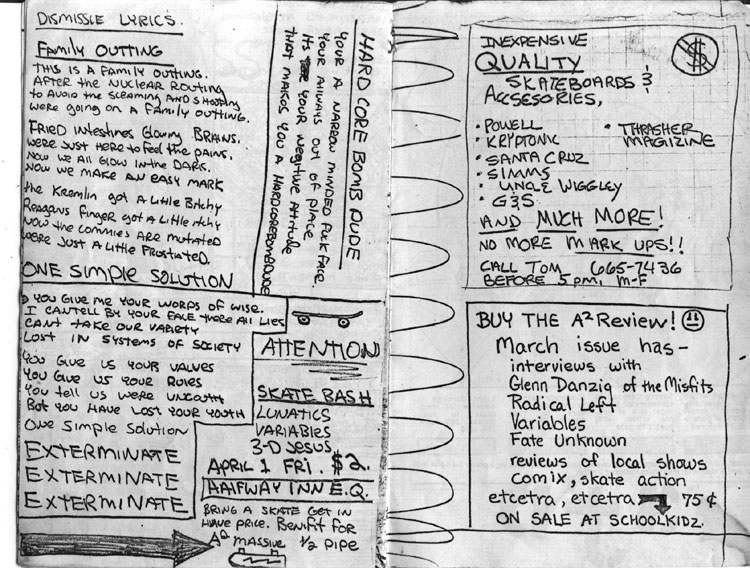 DISMISSLE LYRICS.
FAMILY OUTTING
THIS IS A FAMILY OUTTING.
AFTER THE NUCLEAR ROUTING
TO AVOID THE SCREAMING AND SHOOTING
WERE GOING ON A FAMILY OUTTING.
FRIED INTESTINES GLOWING BRAINS.
WERE JUST HERE TO FEEL THE PAINS.
NOW WE ALL GLOW IN THE DARK.
NOW WE MAKE AN EASY MARK
THE KREMLIN GOT A LITTLE BITCHY
REAGANS FINGER GOT A LITTLE ITCHY
NOW THE COMMIES ARE MUTATED
WERE JUST A LITTLE FRUSTIATED.
HARD CORE BOMB DUDE
YOUR A NARROW MINDED FUCK FACE
YOUR ALWAYS OUT OF PLACE
ITS YOUR NEGITIVE ATTITUDE
THAT MAKES YOU A HARDCOREBOMBDUDE
ONE SIMPLE SOLUTION
YOU GIVE ME YOUR WORDS OF WISE.
I CAN TELL BY YOUR FACE THERE ALL LIES
CANT TAKE OUR VARIETY
LOST IN SYSTEMS OF SOCIETY
YOU GIVE US YOUR VALUES
YOU GIVE US YOUR RULES
YOU TELL US WERE UNCOUTH
BUT YOU HAVE LOST YOUR YOUTH
ONE SIMPLE SOLUTION
EXTERMINATE
EXTERMINATE
EXTERMINATE
ATTENTION
SKATE BASH
LUNATICS
VARIABLES
3-D JESUS
APRIL 1 FRI. $2.
HALFWAY INN E.Q.
BRING A SKATE GET IN
HAVE PRICE. BENIFIT FOR
A² MASSIVE 1/2 PIPE
INEXPENSIVE
QUALITY
SKATEBOARDS &
ACCSESORIES,
• POWELL • THRASHER
• KRYPTONIC MAGIZINE
• SANTA CRUZ
• SIMMS
• UNCLE WIGGLEY
• G&S
AND MUCH MORE!
NO MORE MARK UPS!!
CALL TOM 665-7436
BEFORE 5 PM, M-F
$
BUY THE A² REVIEW!
March issue has-
interviews with
Glenn Danzig of the Misfits
Radical Left
Variables
Fate Unknown
reviews of local shows
comix, skate action
etcetra, etcetra 75¢
ON SALE AT SCHOOLKIDZ.